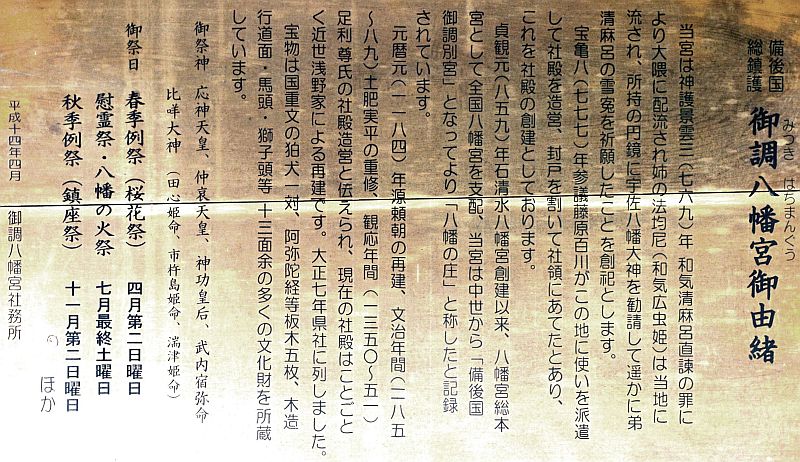 備後国
総鎮護
御調八幡宮御由緒
みつき はちまんぐう
当宮は神護景雲三(七六九)年 和気清麻呂直諫の罪に
より大隈に配流され姉の法均尼(和気広虫姫)は当地に
流され、所持の円鏡に宇佐八幡大神を勧請して遥かに弟
清麻呂の雪冤を祈願したことを創祀とします。
宝亀八(七七七)年参議藤原百川がこの地に使いを派遣
して社殿を造営、封戸を割いて社領にあてたとあり、
これを社殿の創建としております。
貞観元(八五九)年石清水八幡宮創建以来、八幡宮総本
宮として全国八幡宮を支配、当宮は中世から「備後国
御調別宮」となってより「八幡の庄」と称したと記録
されています。
元暦元(一一八四)年源頼朝の再建、文治年間(一一八五
～八九)土肥実平の重修、観応年間(一三五〇～五一)
足利尊氏の社殿造営と伝えられ、現在の社殿はことごと
く近世浅野家による再建です。大正七年県社に列しました。
宝物は国重文の狛犬一対、阿弥陀経等板木五枚、木造
行道面・馬頭・獅子頭等 十三面余の多くの文化財を所蔵
しています。
御祭神 応神天皇、仲哀天皇、神功皇后、武内宿弥命
比咩大神 (田心姫命、市杵島姫命、湍津姫命)
御祭日 春季例祭(桜花祭) 四月第二日曜日
慰霊祭・八幡の火祭 七月最終土曜日
秋季例祭(鎮座祭) 十一月第二日曜日
のほか
平成十四年四月 御調八幡宮社務所